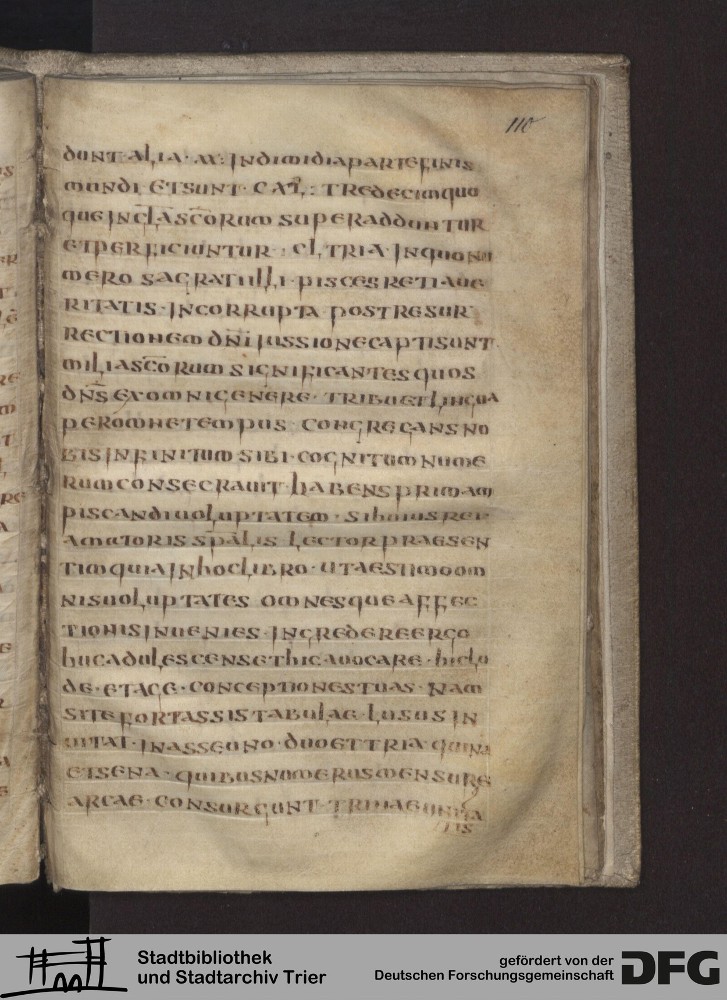 110
dunt alia · xx: Indimidiapartefinis
mundi Etsunt · CAP: TRedecimquo
queInclascorum superadduntur
etperficiuntur : clTRIA · Inquonu
mero sacratulli · piscesretiaue
ritatis · Incorrupta · postresur
rectionem dni Iussionecaptisunt
miliascorum significantesquos
dns exomnigenere · tribuetlingua
peromnetempus · congregansno
bisInfinitum sibi · cognitumnume
rumconsecrauit · habensprimam
piscandiuoluptatem · sihuiusrei
amatoris spalis lectorpraesen
timquiaInhoclibro · utaestimoom
nisuoluptates omnesqueaffec
tionisInuenies · Ingredereergo
hucadulescensethicuocare · hiclu
de · etage · conceptionestuas · Nam
sitefortassistabulae · lususIn
uitat · Inassecno · duoettria · quina
etsena · quibusnumerusmensure
arcae · consurgunt · trinaeunita
tis
Stadtbibliothek
und Stadtarchiv Trier
gefördert von der
Deutschen Forschungsgemeinschaft
DFG